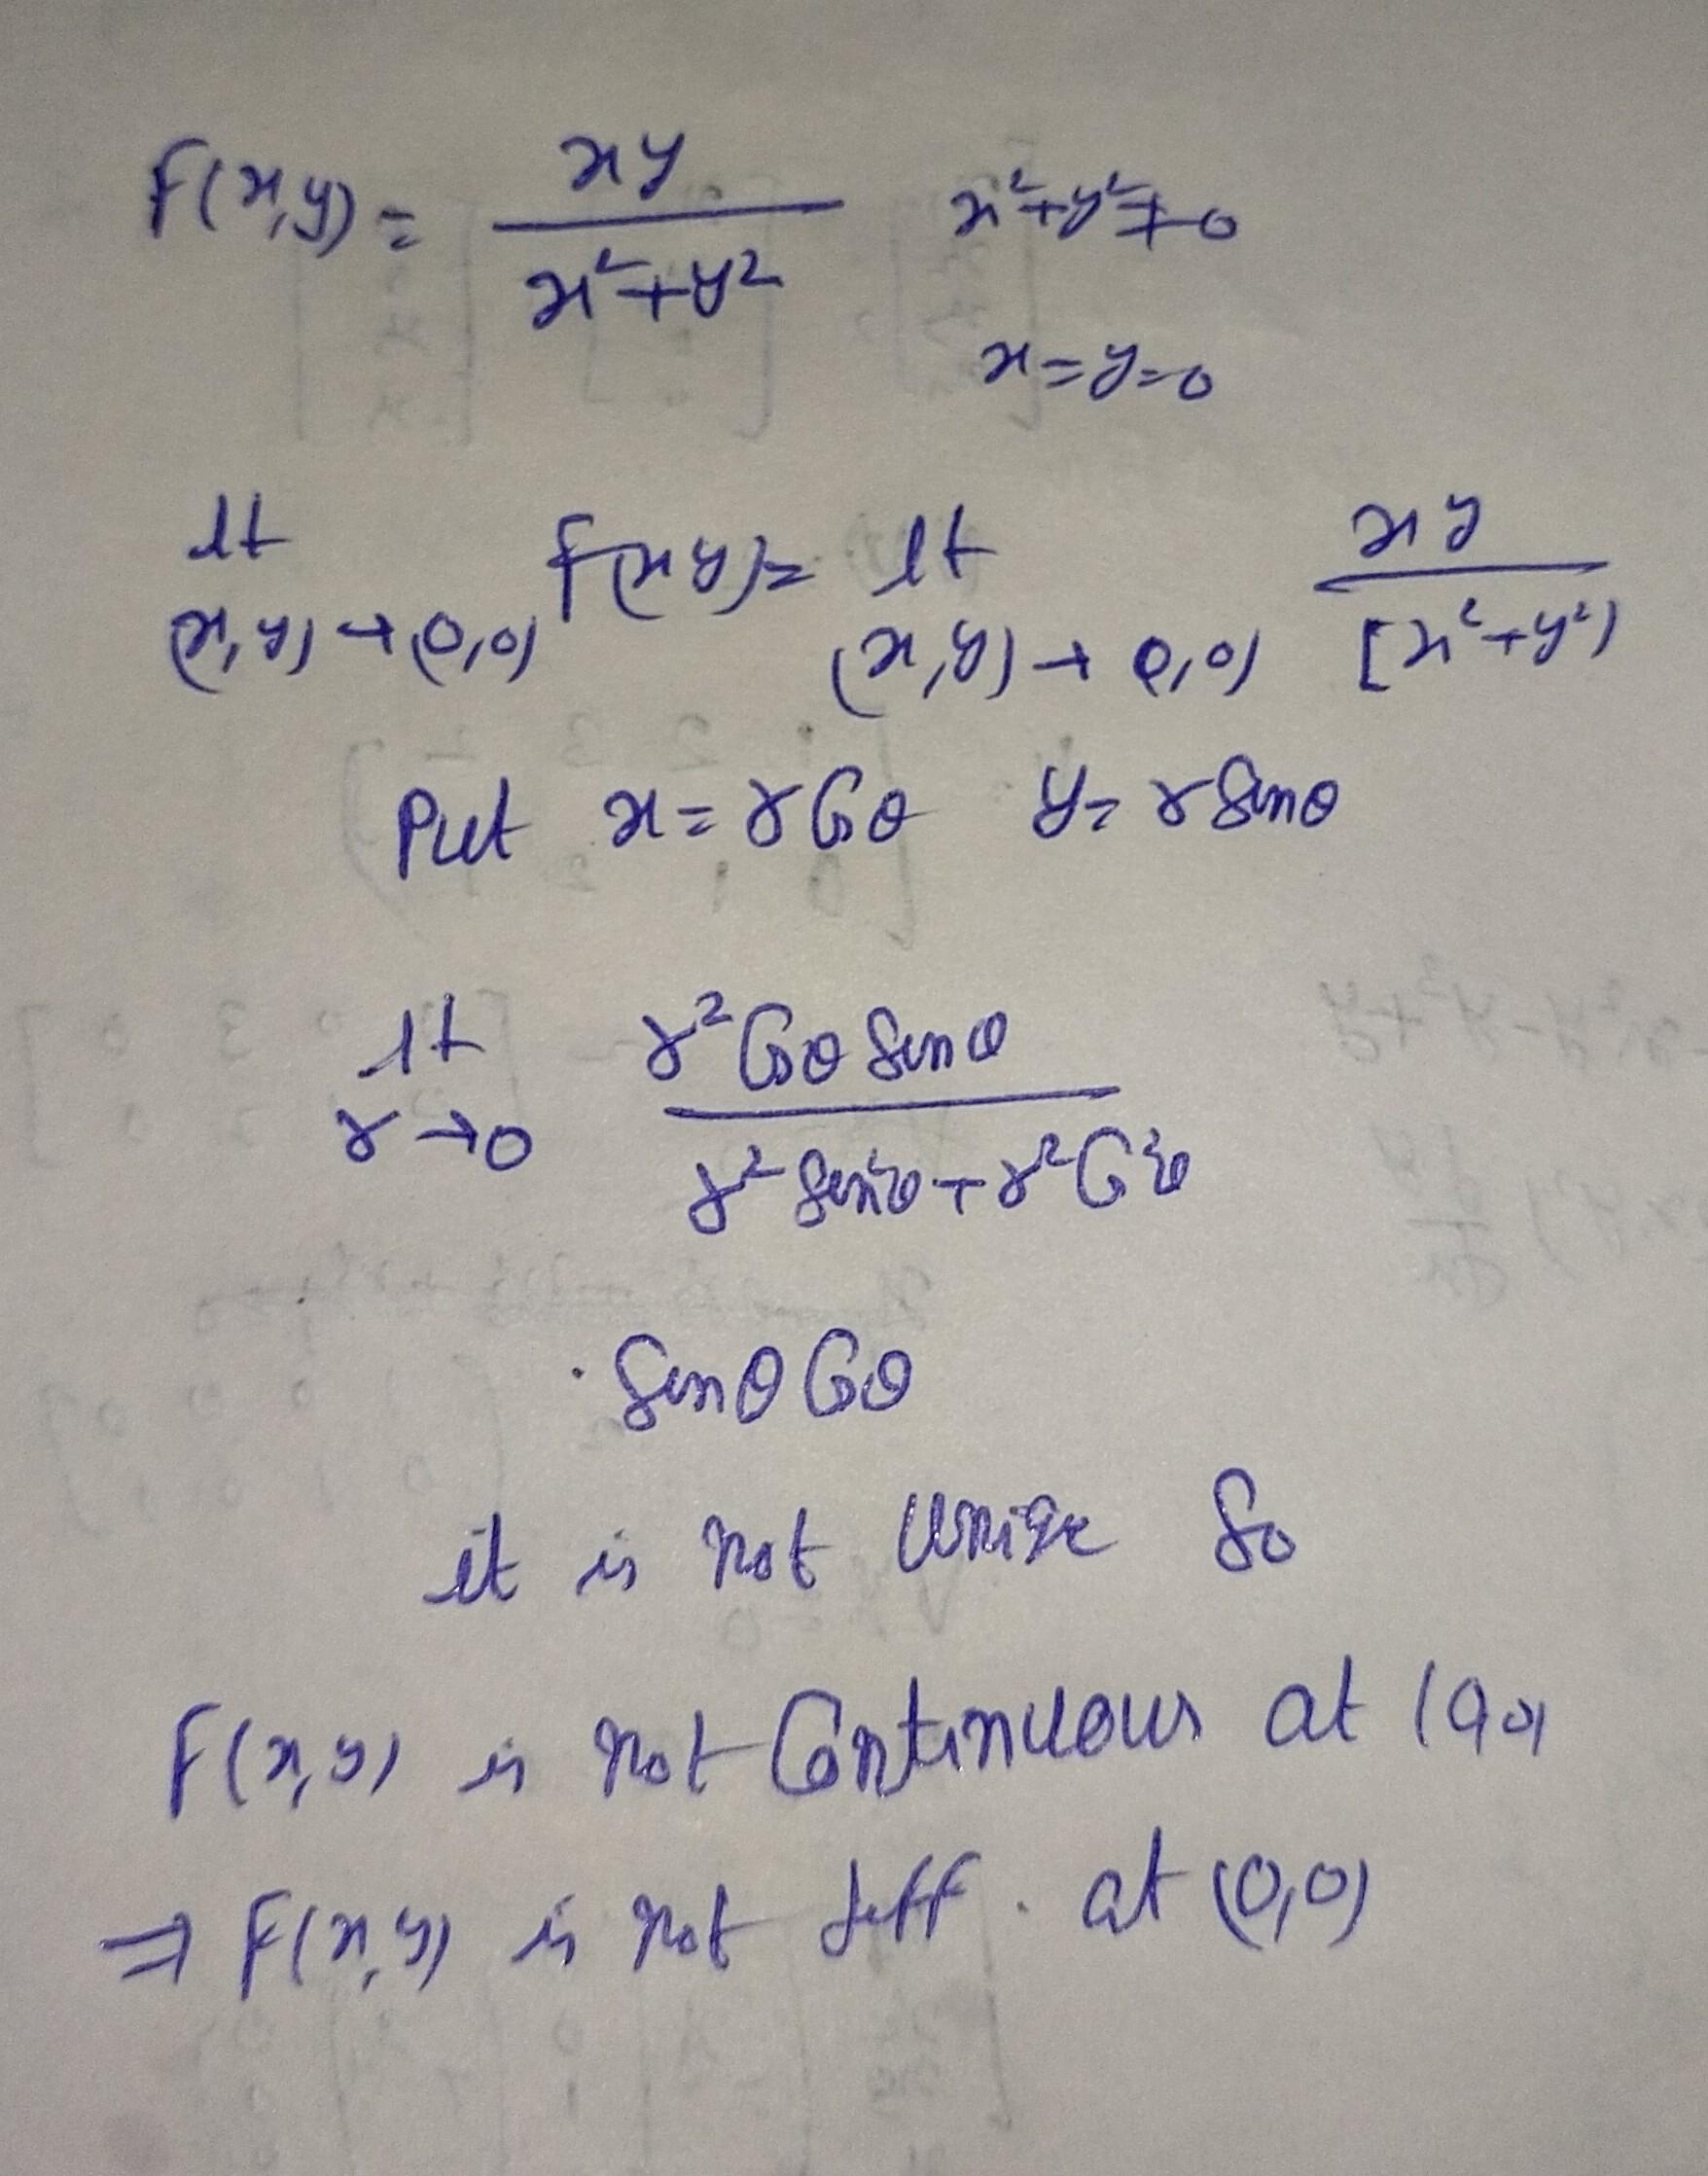 F(x,y) = xy / x²+y²   x²+y²≠0
x=y=0
lt (x,y)→(0,0) F(x,y) = lt (x,y)→(0,0) xy / [x²+y²)
Put x = r Cosθ   y = r Sinθ
lt r→0 r² Cosθ Sinθ / r² Sin²θ + r² Cos²θ
Sinθ Cosθ
it is not So
F(x,y) is not Continuous at (0,0)
⇒ F(x,y) is not diff. at (0,0)